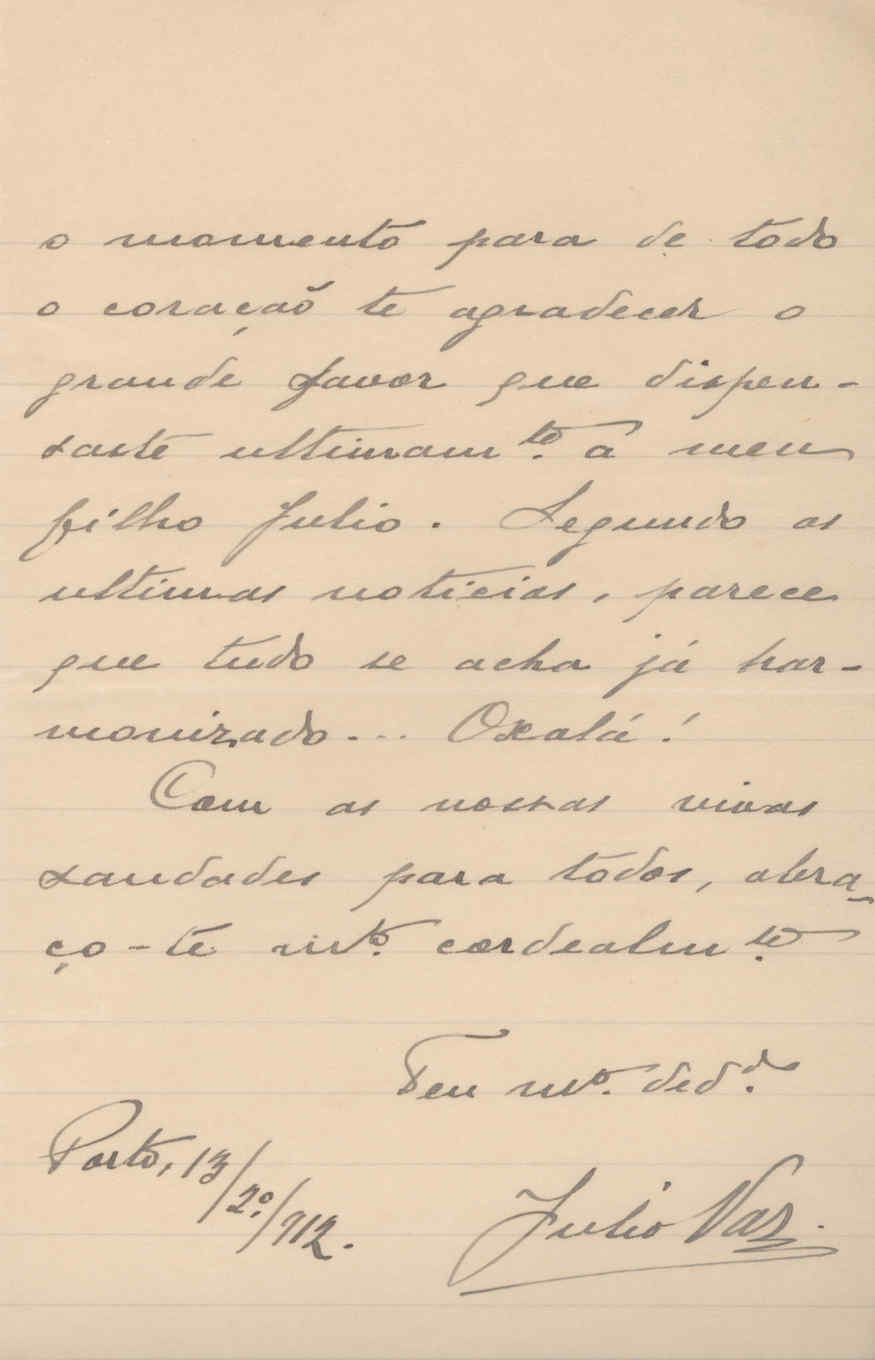 o momento para de todo
o coração te agradecer o
grande favor que dispen-
saste ultimamte. a meu
filho Julio. Segundo as
ultimas noticias, parece
que tudo se acha já har-
monizado... Oxalá!
Com as nossas vivas
saudades para todos, abra-
ço-te mto. cordealmte.
Teu mo. dedo.
Porto, 13/2º/912.
Julio Vaz.